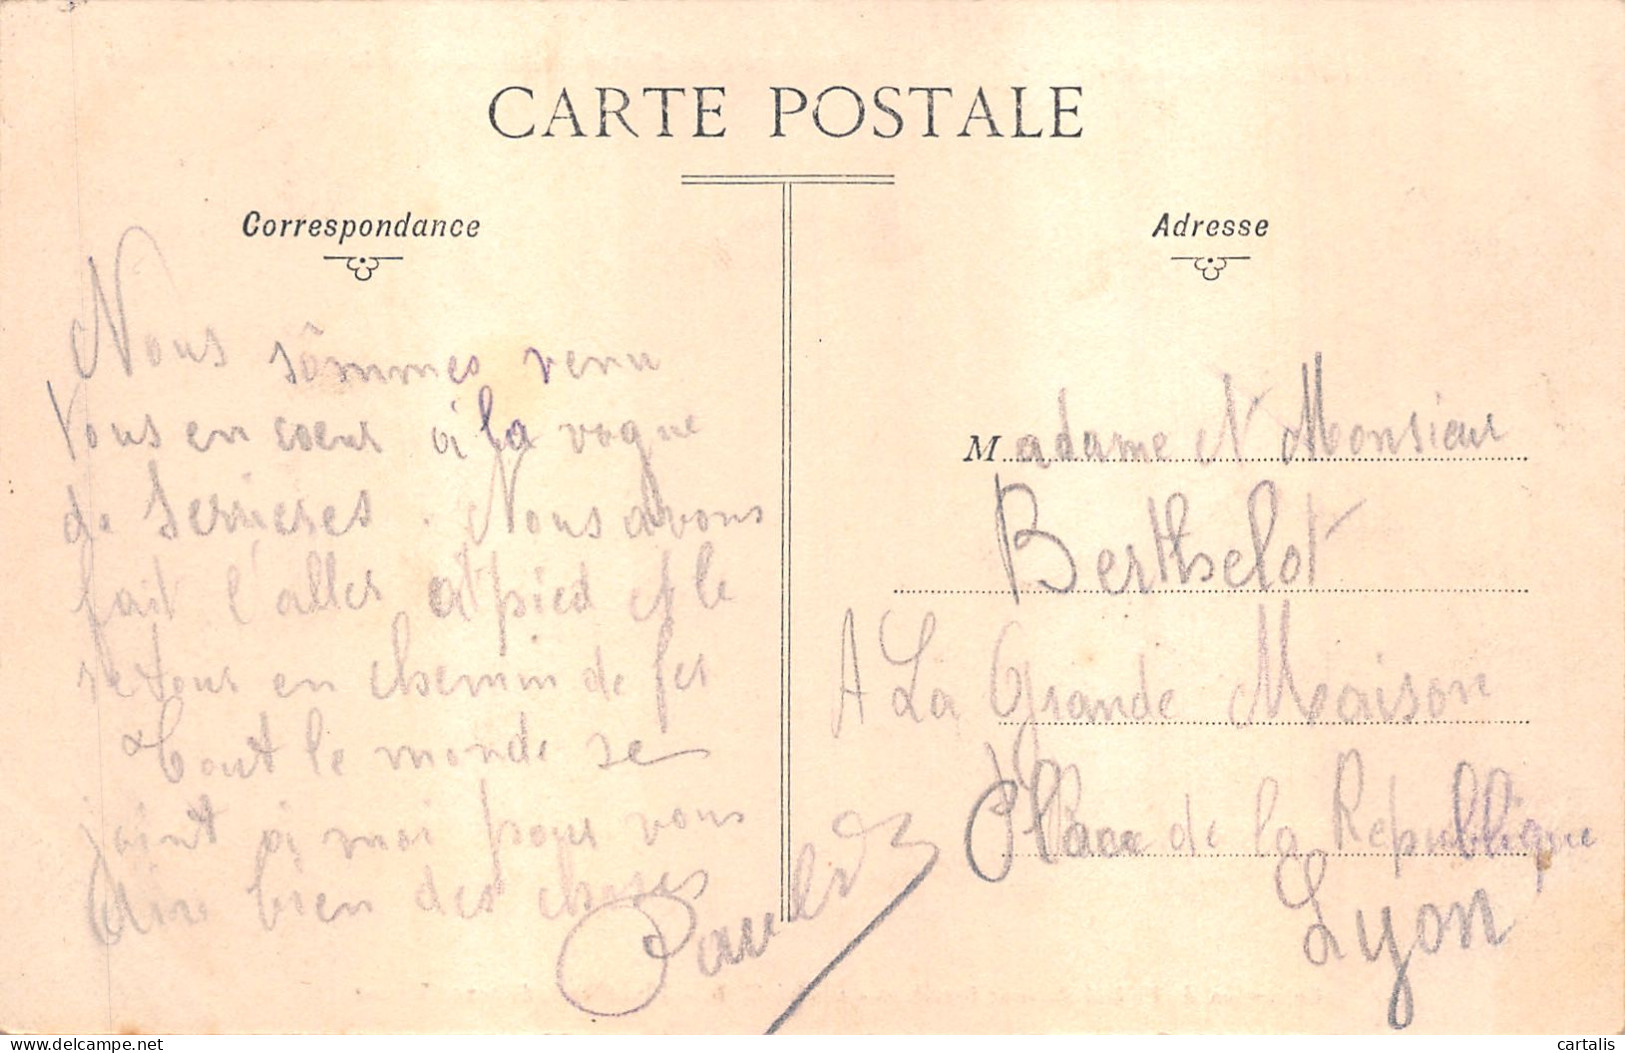 CARTE POSTALE
Correspondance
Nous sômmes venu
tous en cœur à la vogue
de Serrieres. Nous avons
fait l'aller a pied et le
retour en chemin de fer
Tout le monde se
joint à moi pour vous
dire bien des choses
Adresse
Madame & Monsieur
Berthelot
A La Grande Maison
Place de la Republique
Lyon
www.delcampe.net
cartalis